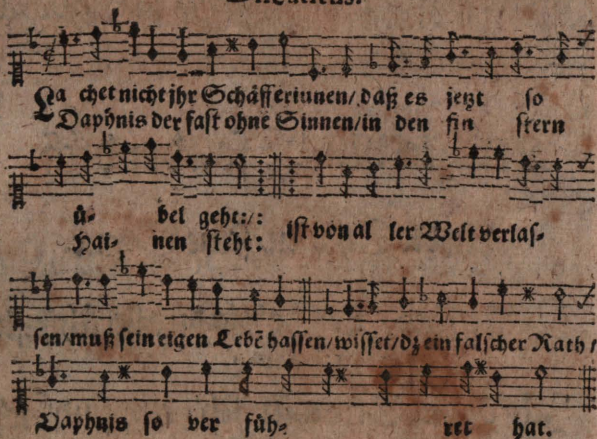 La chet nicht jhr Schäfferiunen/ daß es jetzt so
Daphnis der fast ohne Sinnen/in den fin stern
ü- bel geht:/:
Hai- nen steht:
ist von al ler Welt verlas-
sen/muß sein eigen Lebē hassen/wisset/dz ein falscher Rath/
Daphnis so ver füh- ret hat.